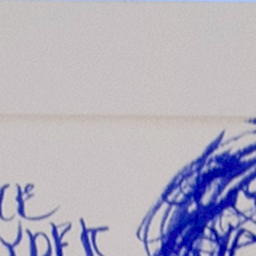 CE
YDEK